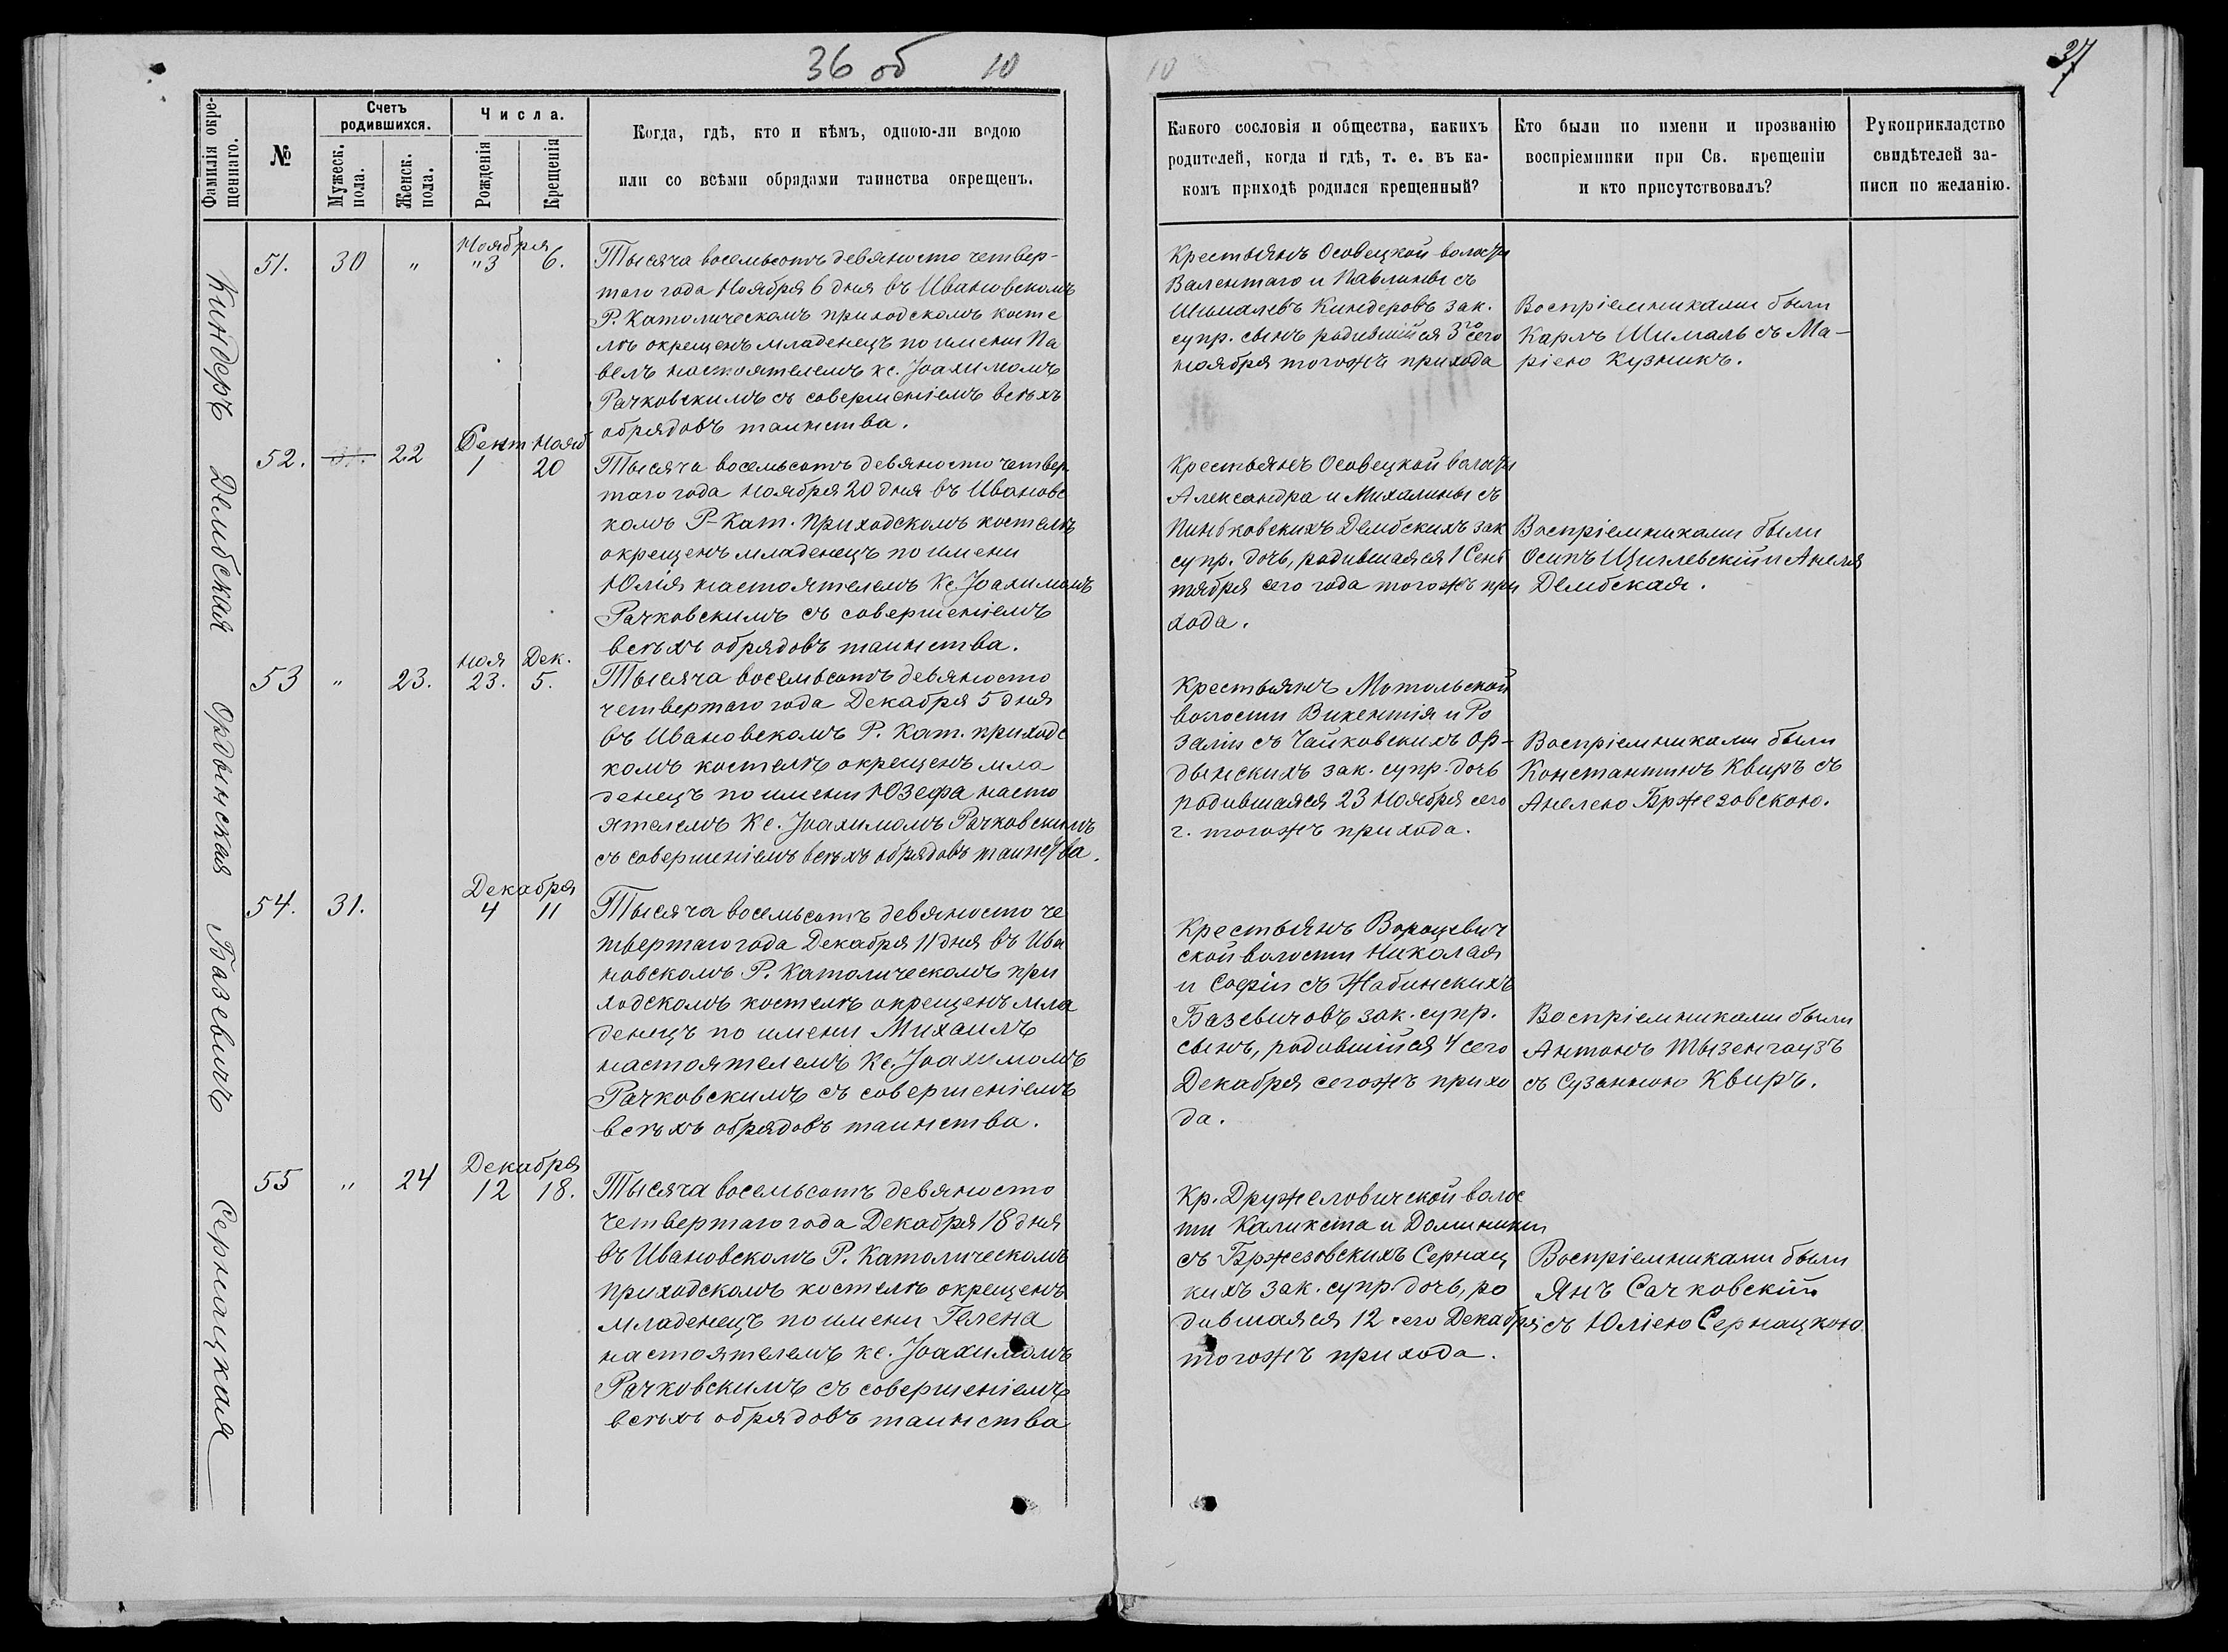 36 об 10
Фамилія окрещеннаго.
№
Счетъ родившихся.
Мужеск. пола.
Женск. пола.
Числа.
Рожденія
Крещенія
Когда, гдѣ, кто и кѣмъ, одною-ли водою
или со всѣми обрядами таинства окрещенъ.
Киндеръ
51. 30 „ Ноября
"3 6.
Тысяча восемьсотъ девяносто четвер-
таго года Ноября 6 дня въ Ивановскомъ
Р. Католическомъ приходскомъ косте
лѣ окрещенъ младенецъ по имени Па
велъ настоятелемъ кс. Іоахимомъ
Рачковскимъ съ совершеніемъ всѣхъ
обрядовъ таинства.
Дембская
52. 22 Сент Нояб
1 20
Тысяча восемьсотъ девяносто четвер
таго года Ноября 20 дня въ Ивановс
комъ Р-Кат. приходскомъ костелѣ
окрещенъ младенецъ по имени
Юлія настоятелемъ Кс. Іоахимомъ
Рачковскимъ съ совершеніемъ
всѣхъ обрядовъ таинства.
Ордынская
53 „ 23. Ноя Дек.
23. 5.
Тысяча восемьсотъ девяносто
четвертаго года Декабря 5 дня
въ Ивановскомъ Р. Кат. приходс
комъ костелѣ окрещенъ мла
денецъ по имени Юзефа насто
ятелемъ Кс. Іоахимомъ Рачковскимъ
съ совершеніемъ всѣхъ обрядовъ таинства.
Базевичъ
54. 31. Декабря
4 11
Тысяча восемьсотъ девяносто че
твертаго года Декабря 11 дня въ Ива
новскомъ Р. Католическомъ при
ходскомъ костелѣ окрещенъ мла
денецъ по имени Михаилъ
настоятелемъ Кс. Іоахимомъ
Рачковскимъ съ совершеніемъ
всѣхъ обрядовъ таинства.
Сернацкая
55 „ 24 Декабря
12 18.
Тысяча восемьсотъ девяносто
четвертаго года Декабря 18 дня
въ Ивановскомъ Р. Католическомъ
приходскомъ костелѣ окрещенъ
младенецъ по имени Гелена
настоятелемъ кс. Іоахимомъ
Рачковскимъ съ совершеніемъ
всѣхъ обрядовъ таинства
10
37
Какого сословія и общества, какихъ
родителей, когда и гдѣ, т. е. въ ка-
комъ приходѣ родился крещенный?
Кто были по имени и прозванію
воспріемники при Св. крещеніи
и кто присутствовалъ?
Рукоприкладство
свидѣтелей за-
писи по желанію.
Крестьянъ Осовецкой волости
Валентаго и Павлины съ
Шималевъ Киндеровъ зак.
супр. сынъ родившійся 3го сего
ноября тогожъ прихода
Воспріемниками были
Карлъ Шималь съ Ма-
ріею Кузникъ.
Крестьянъ Осовецкой волости
Александра и Михалины съ
Пинбковскихъ Дембскихъ зак
супр. дочь, родившаяся 1 Сент
тября сего года тогожъ при
хода.
Воспріемниками были
Осипъ Щиглевскій и Анеля
Дембская.
Крестьянъ Мотольской
волости Викентія и Ро
заліи съ Чайковскихъ Ор-
дынскихъ зак. супр. дочь
родившаяся 23 Ноября сего
г. тогожъ прихода.
Воспріемниками были
Константинъ Квиръ съ
Анелею Бржезовскою.
Крестьянъ Вороцевич
ской волости Николая
и Софіи съ Жабинскихъ
Базевичовъ зак. супр.
сынъ, родившійся 4 сего
Декабря сегожъ прихо
да.
Воспріемниками были
Антонъ Тызенгаузъ
съ Сузанною Квиръ.
Кр. Дружеловичской волос
ти Каликста и Доминики
съ Бржезовскихъ Сернац
кихъ зак. супр. дочь, ро
дившаяся 12 сего Декабря
тогожъ прихода.
Воспріемниками были
Янъ Сачковскій
съ Юліею Сернацкою